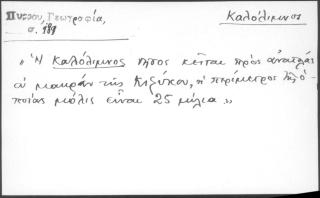 Πύρρου, Γεωγραφία, Καλόλιμνος
σ. 199
« Ἡ Καλόλιμνος νῆσος κεῖται πρὸς ἀνατολὰς
οὐ μακρὰν τῆς Κυζίκου, ἡ περίμετρος τῆς ὁ-
ποίας μόλις εἶναι 25 μίλια »